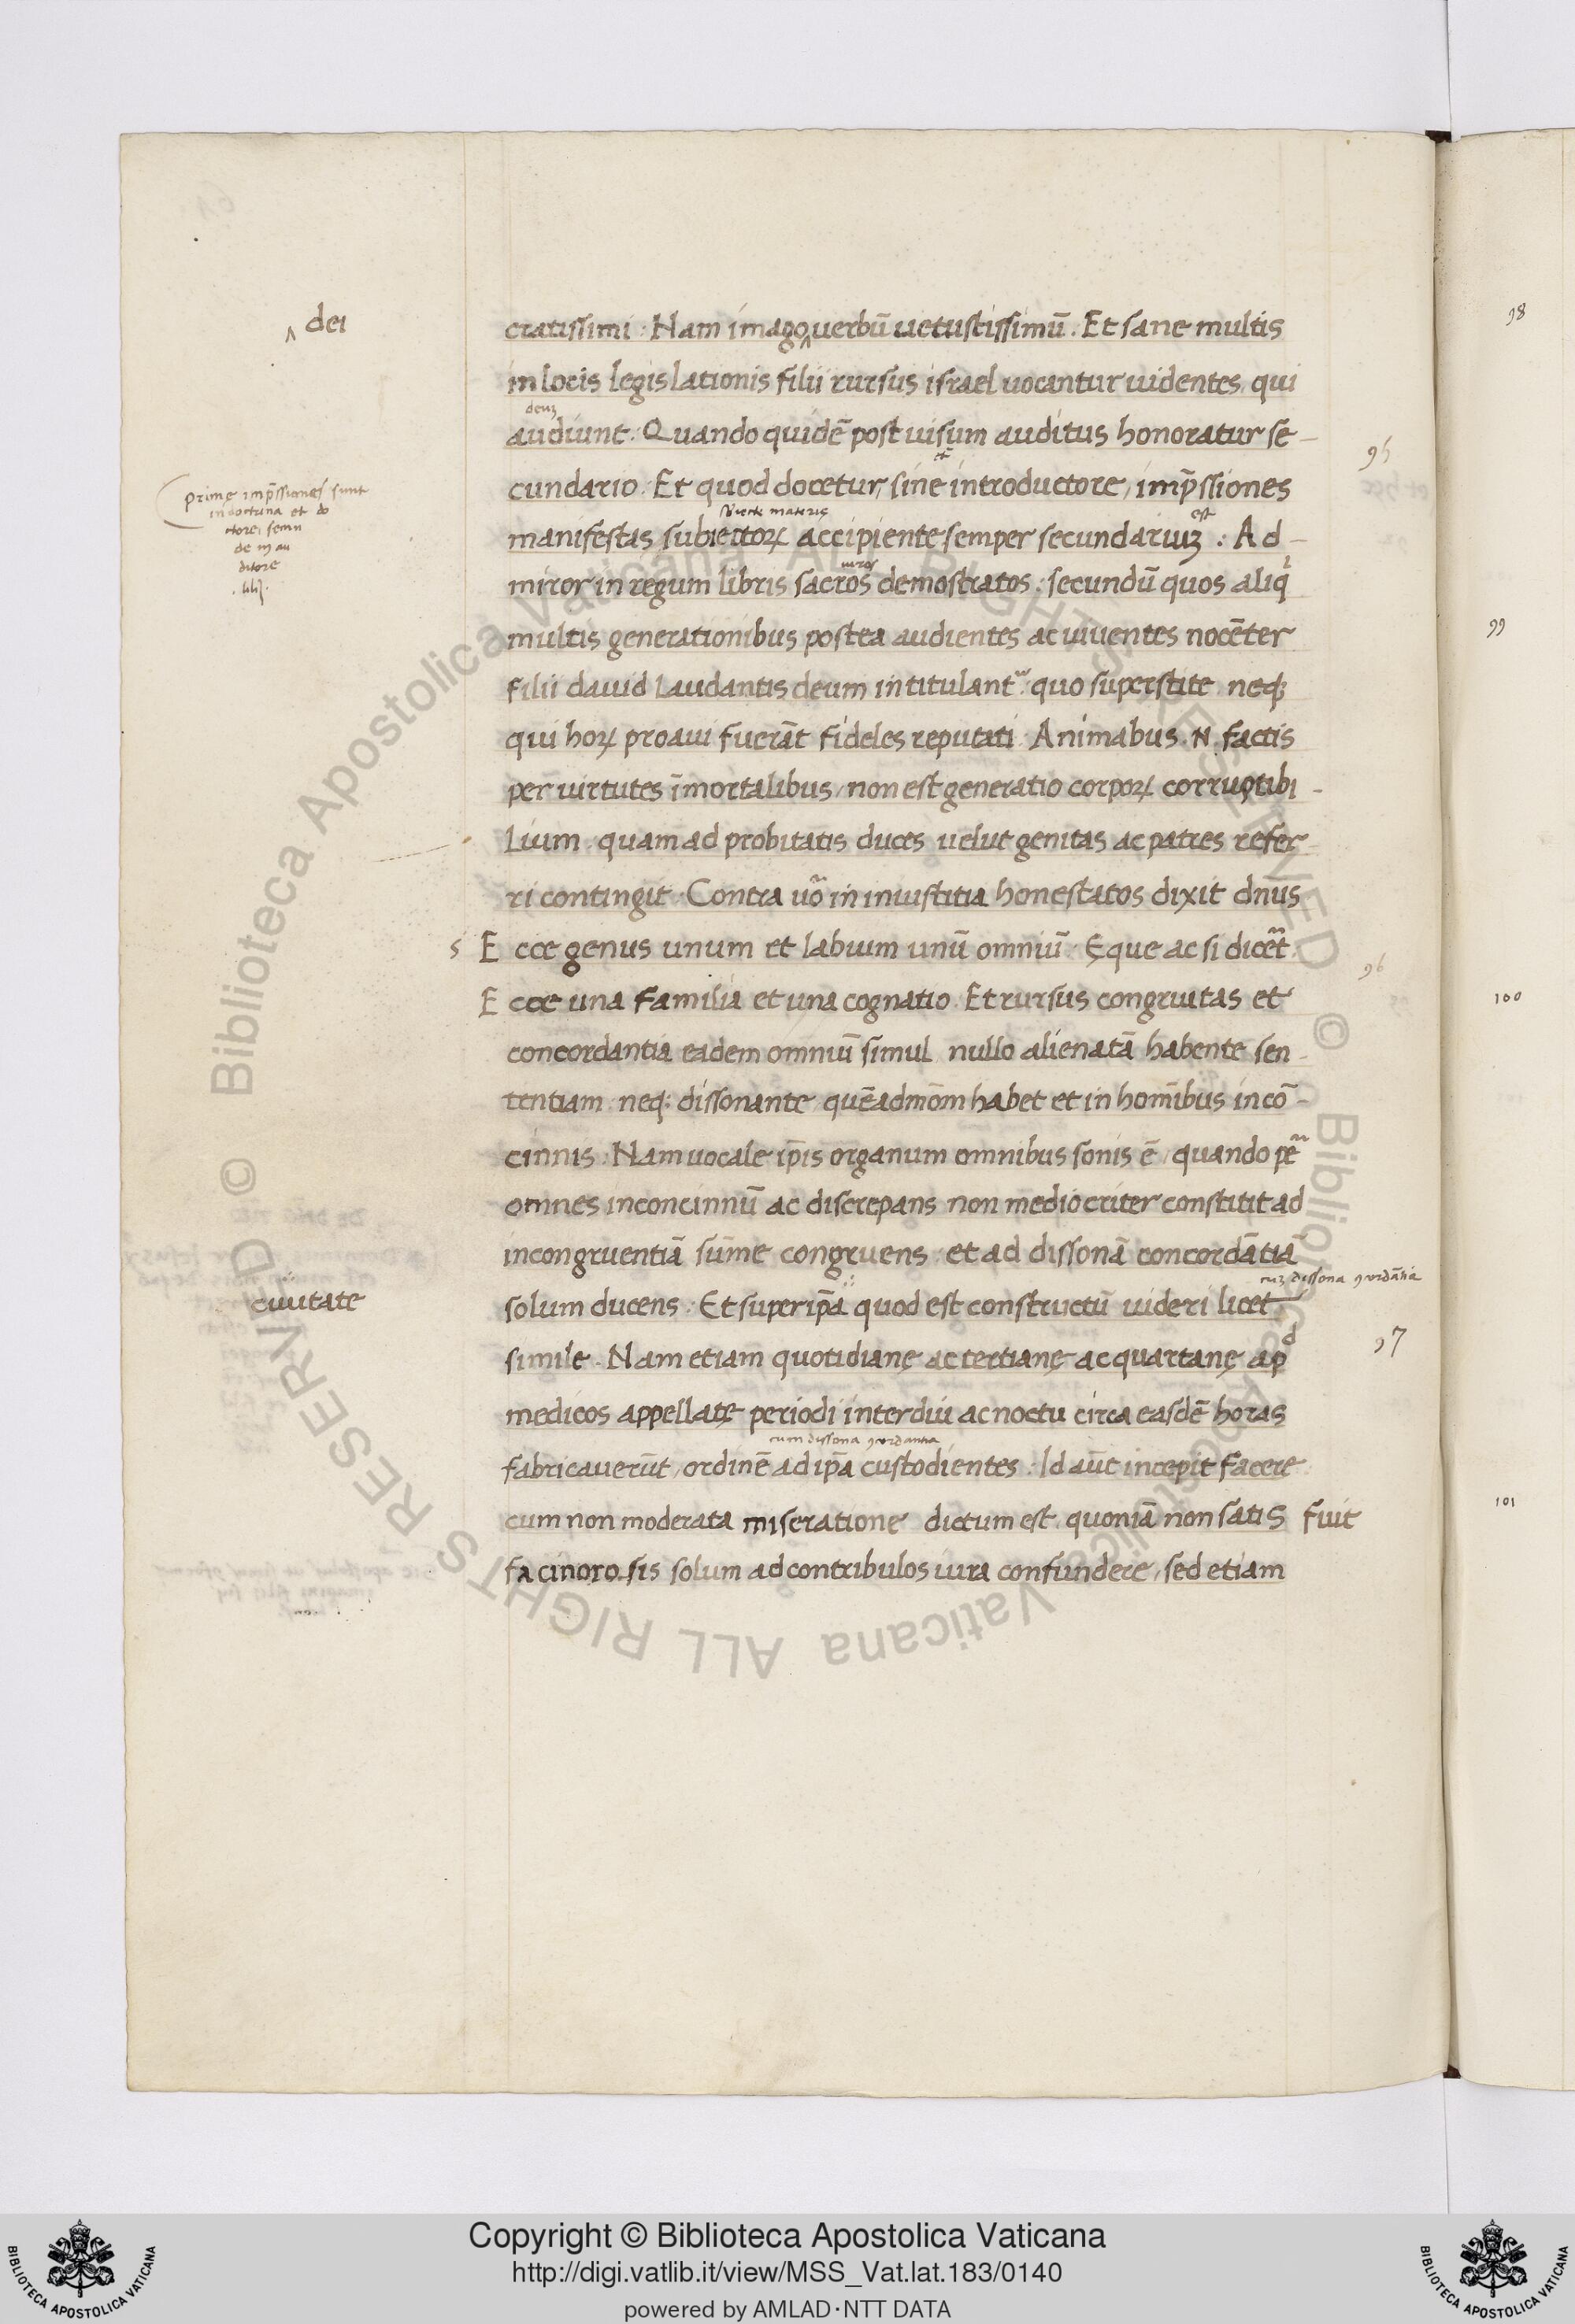 dei
cratissimi : Nam imago verbū uetustissimū . Et sane multis
in locis legis lationis filii rursus israel uocantur uidentes, qui
deuꝫ
audiunt : Quando quidē post uisum auditus honoratur se-
95
et
cundario : Et quod docetur, sine introductore, imp̄ssiones
prime imp̄ssiones sunt
in doctrina et do
ctore,
ditore
manifestas subiectoꝝ accipiente semper secundariuꝫ : Ad-
est
uiros
miror in regum libris sacros demostratos : secundū quos aliq
multis generationibus postea audientes ac uiuentes nocēter
filii dauid laudantis deum intitulant᷑ quo superstite neqꝫ
qui hoꝝ proaui fuerāt fideles reputati : Animabus . N . factis
per uirtutes īmortalibus, non est generatio corpoꝝ corruptibi-
lium quam ad probitatis duces uelut genitas ac patres refer-
ri contingit : Contra uo᷑ in iniustitia honestatos dixit dn̄us
s Ecce genus unum et labium unū omniū : Eque ac si dicēt
96
Ecce una familia et una cognatio . Et rursus congruitas et
concordantia eadem omniū simul nullo alienatā habente sen-
tentiam neqꝫ dissonante quēadmōm habet et in homībus incō-
cinnis : Nam uocale ip̄is organum omnibus sonis ē, quando
omnes inconcinnū ac discrepans non mediocriter constitit ad
incongruentiā sūme congruens : et ad dissonā concordātiā
cuꝫ dissona ꝯcordātia
ciuitate
solum ducens : Et super ip̄a quod est constructū uideri licet
97
simile . Nam etiam quotidianę ac tertianę ac quartanę apd
medicos appellatę periodi interdiu ac noctu circa easdē horas
cum dissona ꝯcordantia
fabricauerūt, ordinē ad ip̄a custodientes : Id aūt incepit facere
cum non moderata miseratione dictum est, quoniā non satis fuit
facinorosis solum ad contribulos iura confundere, sed etiam
98
99
100
101
© Biblioteca Apostolica Vaticana ALL RIGHTS RESERVED © Biblioteca Apostolica Vaticana ALL RIGHTS RESERVED
Copyright © Biblioteca Apostolica Vaticana
http://digi.vatlib.it/view/MSS_Vat.lat.183/0140
powered by AMLAD·NTT DATA
BIBLIOTECA APOSTOLICA VATICANA
BIBLIOTECA APOSTOLICA VATICANA